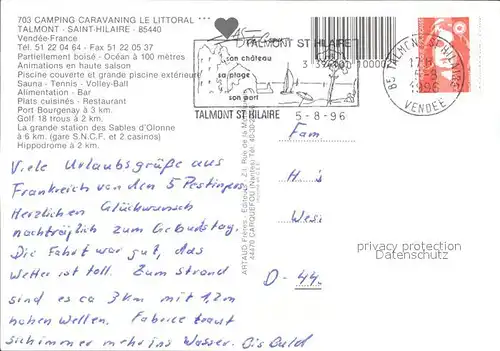 703 CAMPING CARAVANING LE LITTORAL ***
TALMONT - SAINT-HILAIRE - 85440
Vendée-France
Tél. 51 22 04 64 - Fax 51 22 05 37
Partiellement boisé - Océan à 100 mètres
Animations en haute saison
Piscine couverte et grande piscine extérieure
Sauna - Tennis - Volley-Ball
Alimentation - Bar
Plats cuisinés - Restaurant
Port Bourgenay à 3 km.
Golf 18 trous à 2 km.
La grande station des Sables d'Olonne
à 6 km. (gare S.N.C.F. et 2 casinos)
Hippodrome à 2 km.
TALMONT ST HILAIRE
son château
sa plage
son port
TALMONT ST HILAIRE
5-8-96
85 TALMONT ST HILAIRE
5-8
1996
VENDEE
Viele Urlaubsgrüße aus
Frankreich von den 5
Herzlichen Glückwunsch
nachträglich zum Geburtstag.
Die Fahrt war gut, das
Wetter ist toll. Zum Strand
sind es ca 3 km mit 1,2m
hohen Wellen. Fabrice traut
sich immer mehr ins Wasser. Bis bald
ARTAUD Frères, Editeurs - Z.I. Rue de la
44470 CARQUEFOU (Nantes) Tél. 40-30-
Fam
H s
Wesi
D-44
privacy protection
Datenschutz